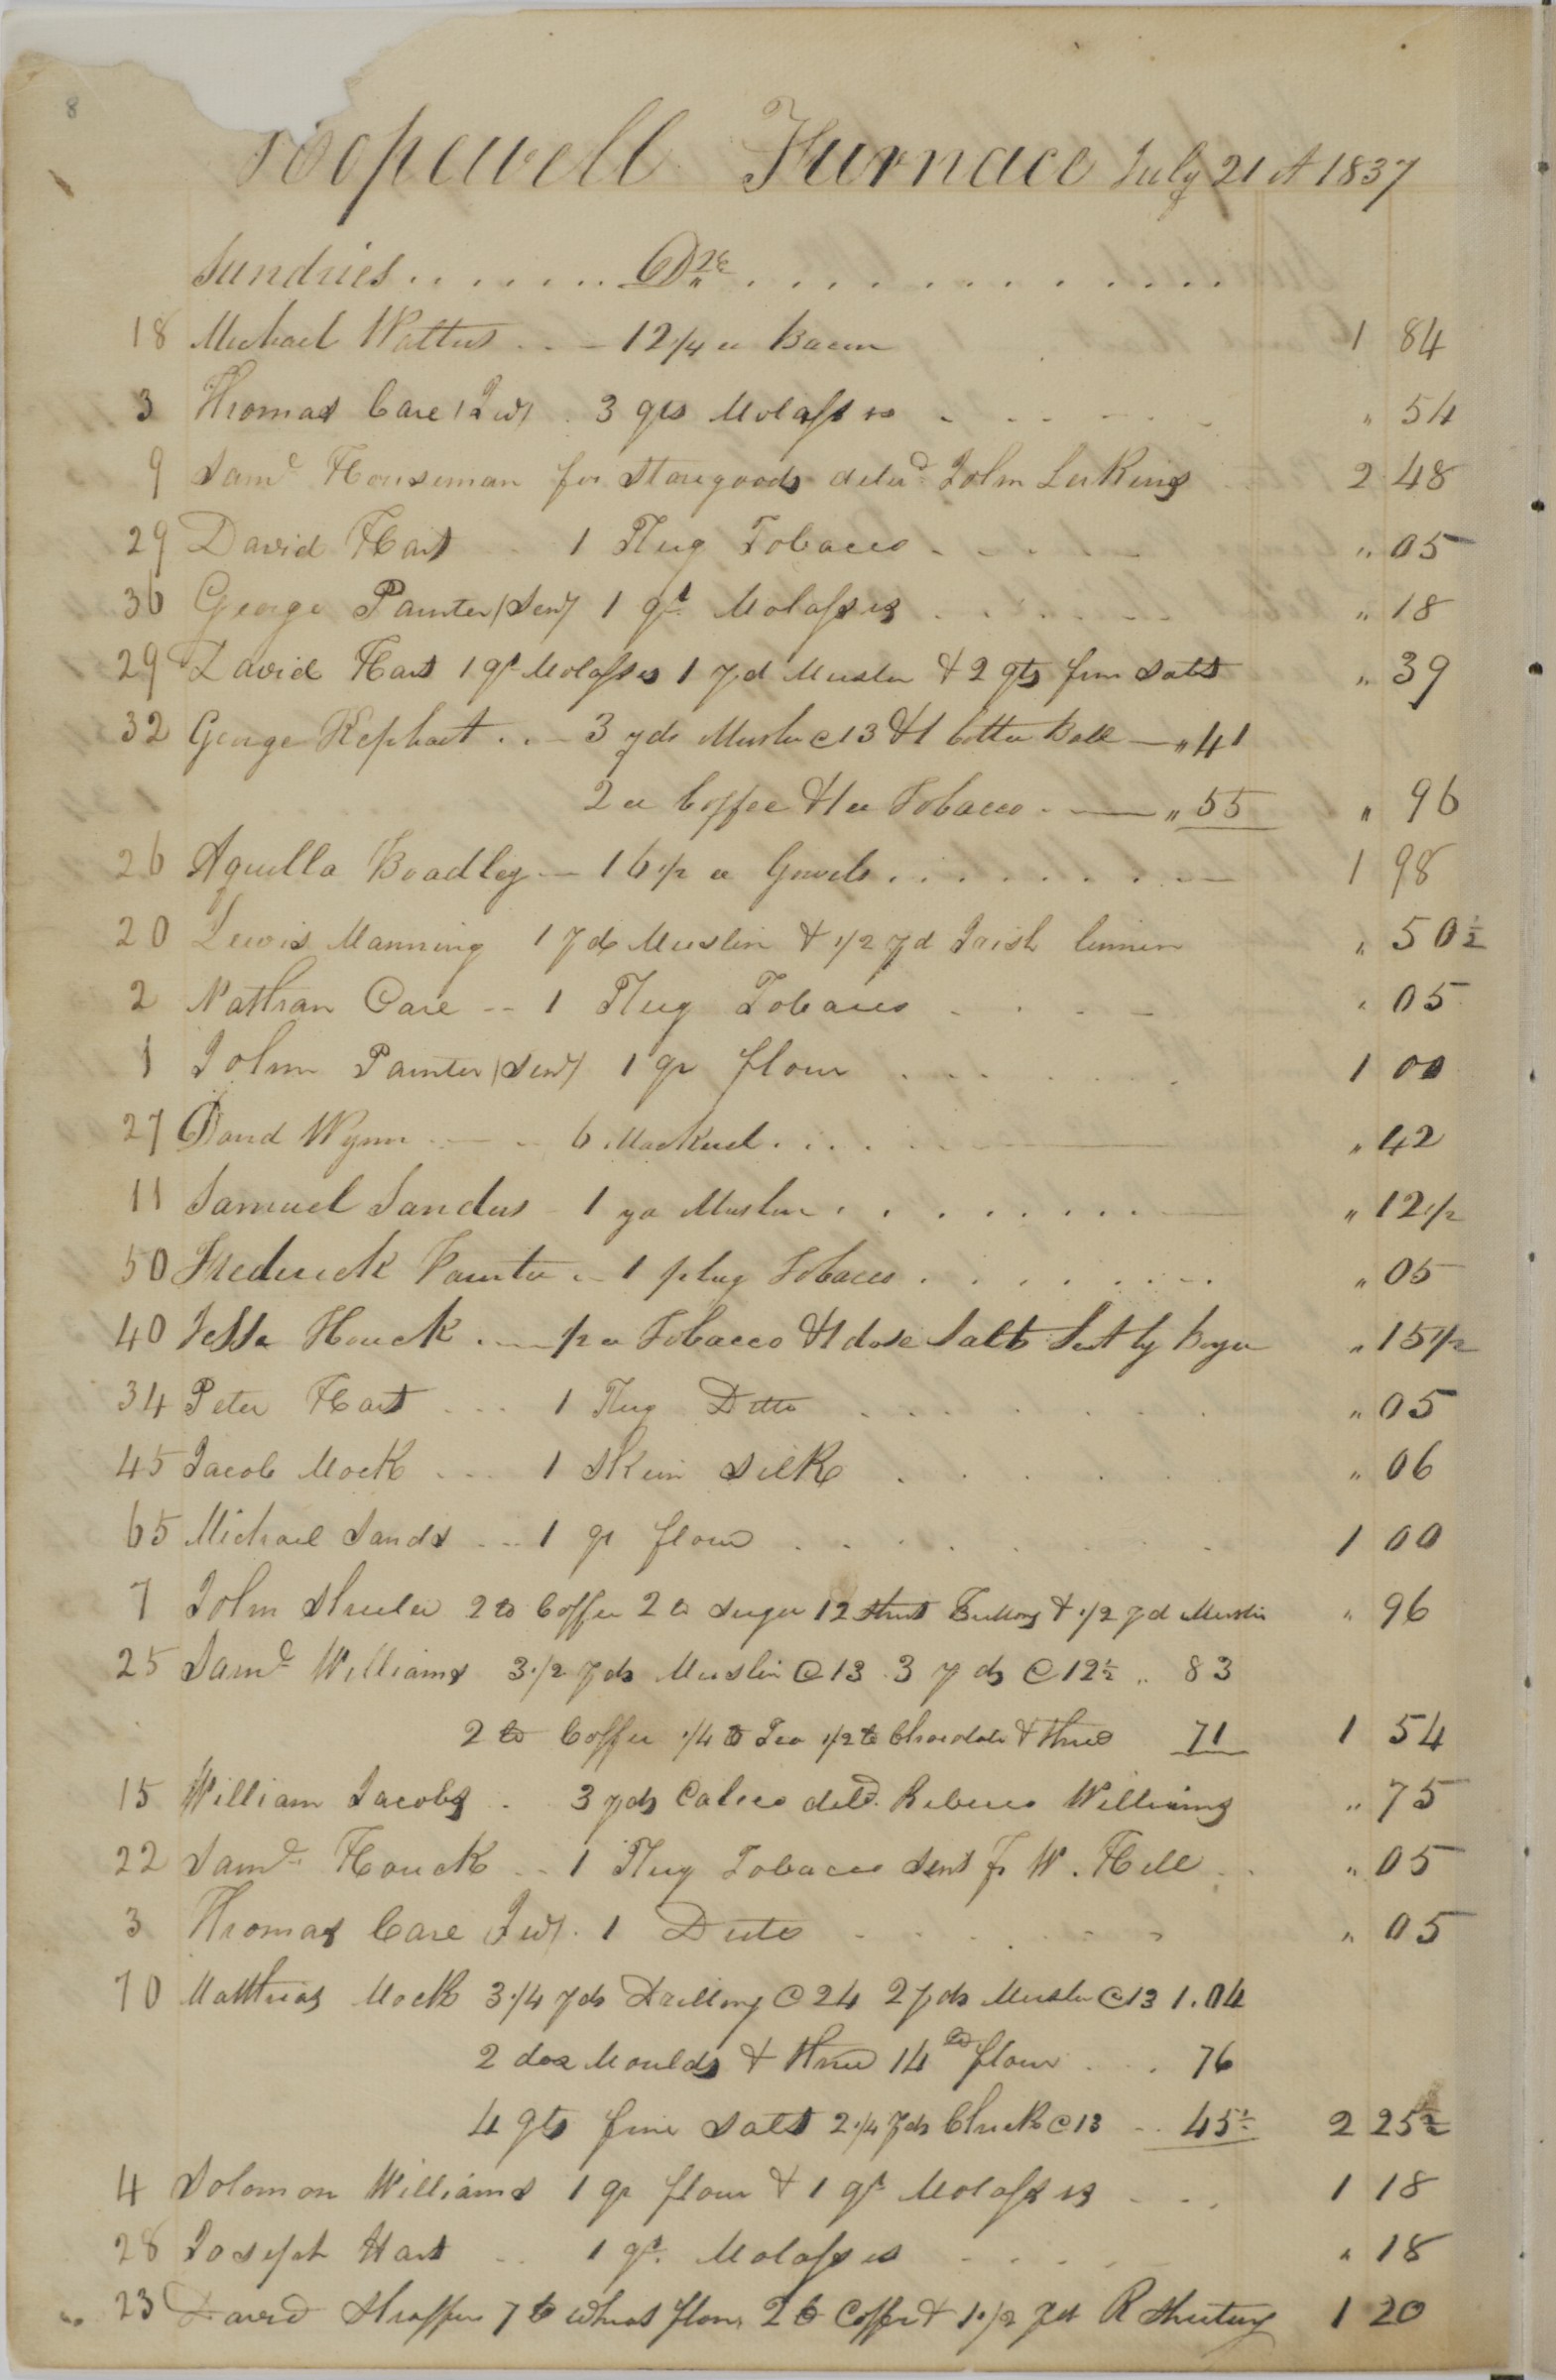 8
Hopewell Furnace July 21st 1837
Sundries . . . . . . Drs . . . . . . . . . . . .
18 Michael Watters . . — 12 1/4 lb Bacon 1 84
3 Thomas Care (Jur) . 3 qts Molasses . . . . „ 54
9 Saml Houseman for Storegoods deld John Lukens 2 48
29 David Hart 1 Plug Tobacco . . . . „ 05
36 George Painter (Senr) 1 qt Molasses . . . . „ 18
29 David Hart 1 qt Molasses 1 yd Muslin & 2 qts fine Salt „ 39
32 George Kephart . . — 3 yds Muslin @ 13 & 1 Cotton Ball — „ 41
2 lb Coffee & 1 lb Tobacco . — „ 55 „ 96
26 Aquilla Bradley — 16 1/2 lb . . . . . . . . . — 1 98
20 Lewis Manning 1 yd Muslin & 1/2 yd Irish linnen „ 50 1/2
2 Nathan Care -- 1 Plug Tobacco . . . . „ 05
1 John Painter (Senr) 1 qr flour . . . . . 1 00
27 David Wynn — . 6 Mackerel . . . . „ 42
11 Samuel Sanders 1 yd Muslin . . . . . . . . . „ 12 1/2
50 Frederick Painter . — 1 plug Tobacco . . . . . . . „ 05
40 Jesse Houck . — 1/2 lb Tobacco & 1 dose Salts Sent by Boyer „ 15 1/2
34 Peter Hart . . . 1 Plug Ditto . . . . . . „ 05
45 Jacob Mock . . . 1 Skein Silk . . . . . „ 06
65 Michael Sands . . . 1 qr flour . . . . . . . 1 00
7 John Sheeler 2 lb Coffee 2 lb Sugar 12 Shirt Buttons & 1/2 yd Muslin „ 96
25 Saml Williams 3 1/2 yds Muslin @ 13 . 3 yds @ 12 1/2 „ 83
2 lb Coffee 1/4 lb Tea 1/2 lb Chocolate & thred 71 1 54
15 William Jacobs . 3 yds Calico deld. Rebecca Williams „ 75
22 Saml Houck . . 1 Plug Tobacco Sent pr W. Hill . . „ 05
3 Thomas Care Jur). 1 Ditto . . . . . . „ 05
70 Matthias Mock 3 1/4 yds Drilling @ 24 2 yds Muslin @ 13 1.04
2 doz Moulds & thred 14 lb flour . . . 76
4 qts fine Salt 2 1/4 yds Check @ 13 . . 45 1/2 2 25 1/2
4 Solomon Williams 1 qr flour & 1 qt Molasses . . . 1 18
28 Joseph Hart . . 1 qt. Molasses . . . . „ 18
23 David Shaffer 7 lb wheat flour 2 lb Coffee & 1 1/2 yd R Sheeting 1 20